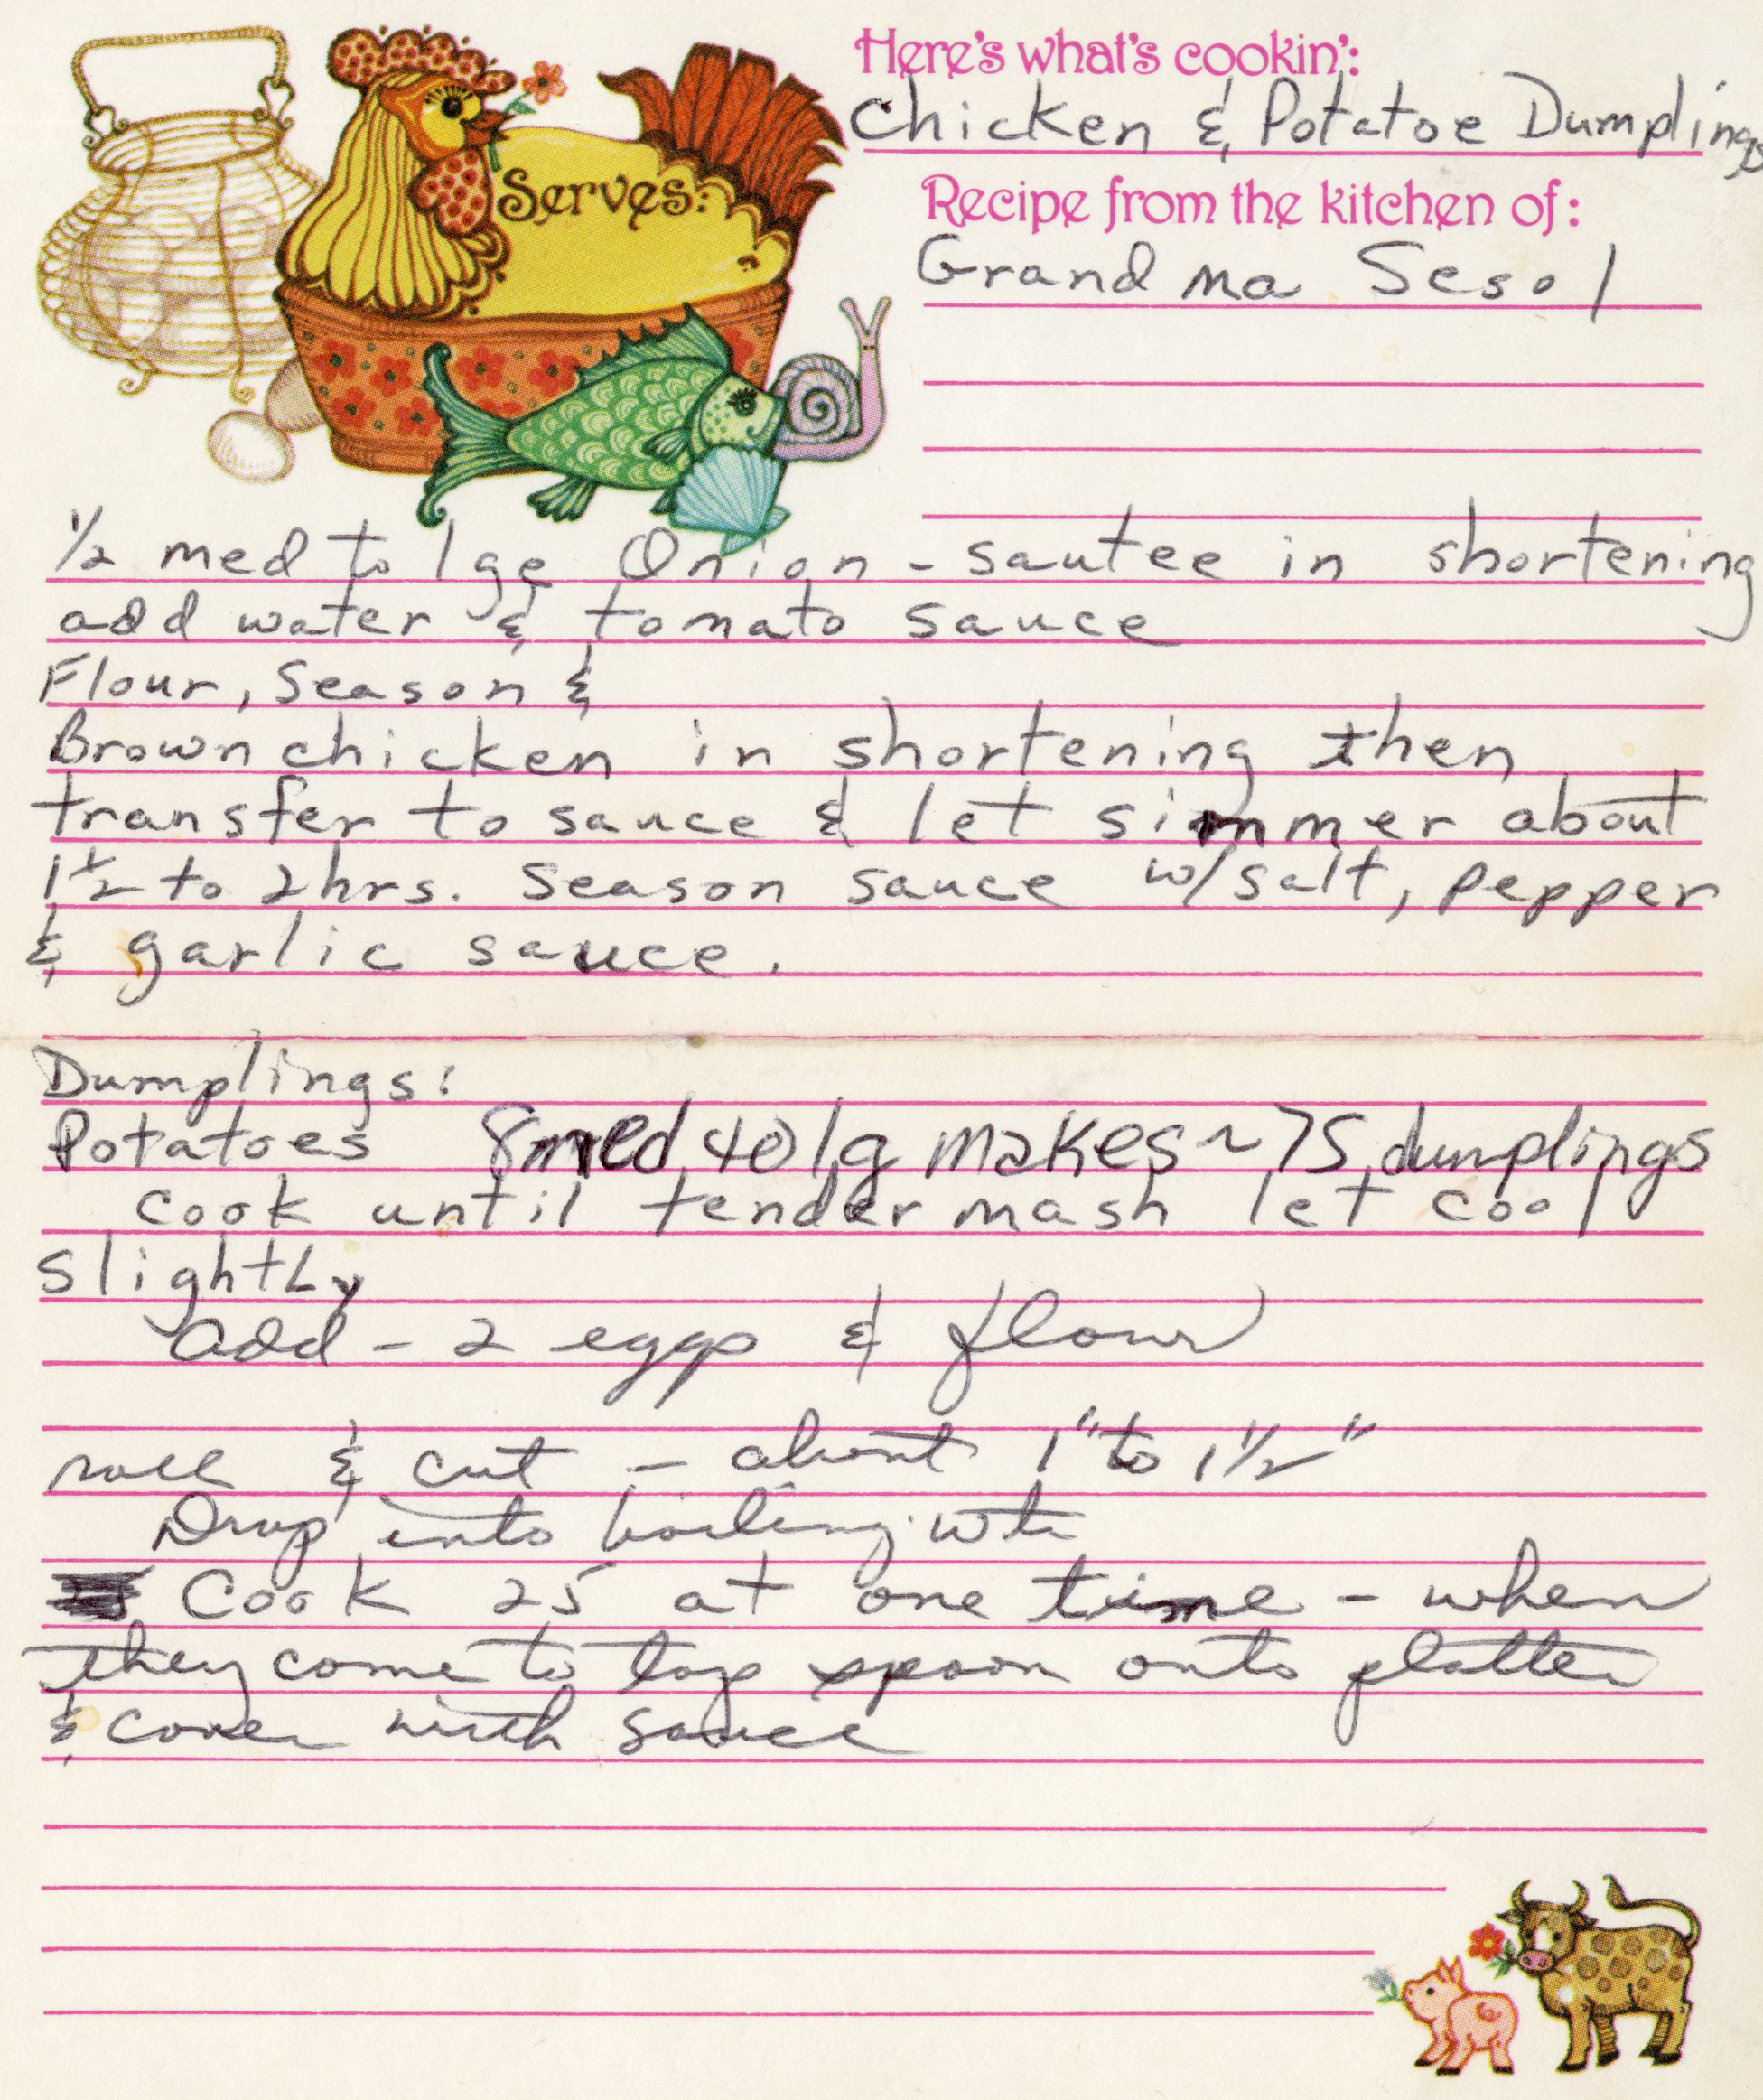 Here's what's cookin':
Chicken & Potatoe Dumplings
Recipe from the kitchen of:
Grandma Sesol
Serves:
1/2 med to lge Onion - sautee in shortening
add water & tomato sauce
Flour, Season &
Brown chicken in shortening then
transfer to sauce & let simmer about
1 1/2 to 2 hrs. Season sauce w/salt, pepper
& garlic sauce.
Dumplings:
Potatoes 8 med to lg makes ~ 75 dumplings
cook until tender mash let cool
slightly
add - 2 eggs & flour
roll & cut - about 1" to 1 1/2"
Drop into boiling wtr
Cook 25 at one time - when
they come to top spoon onto platter
& cover with sauce